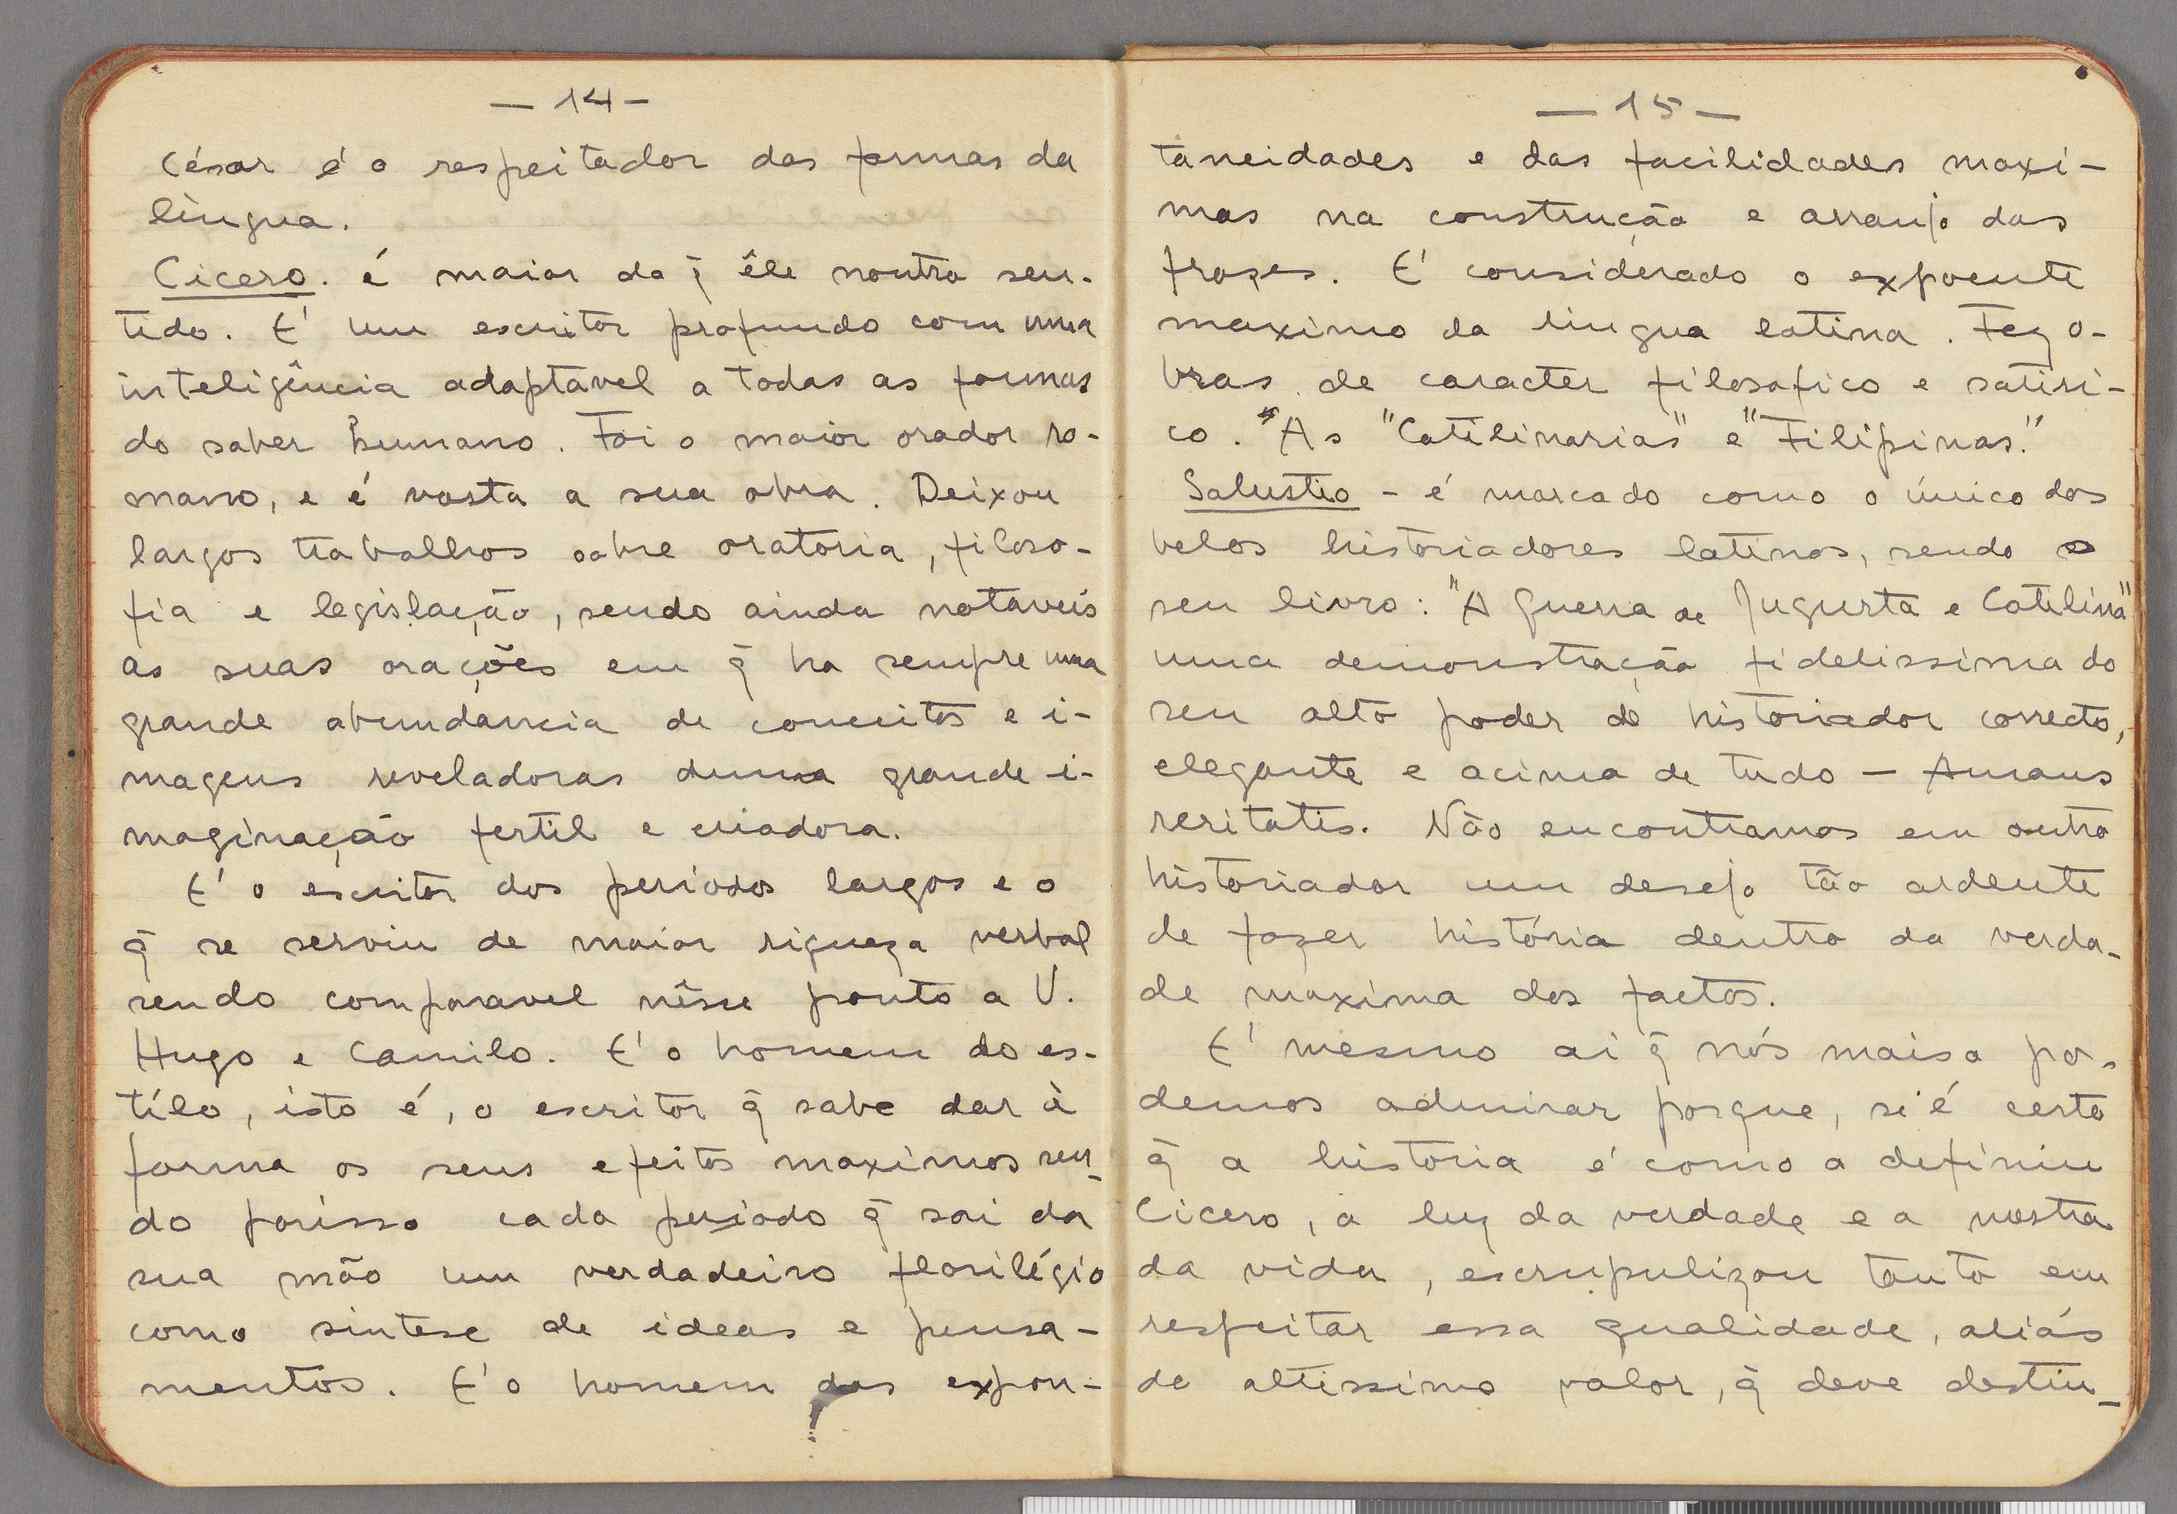 — 14 —
César é o respeitador das formas da
lingua.
Cicero. é maior do q̃ êle noutro sen-
tido. E' um escritor profundo com uma
inteligência adaptavel a todas as formas
do saber humano. Foi o maior orador ro-
mano, e é vasta a sua obra. Deixou
largos trabalhos sobre oratoria, filoso-
fia e legislação, sendo ainda notaveis
as suas orações em q̃ ha sempre uma
grande abundancia de conceitos e i-
magens reveladoras duma grande i-
maginação fertil e criadora.
E' o escritor dos periodos largos e o
q̃ se serviu de maior riqueza verbal
sendo comparavel nêsse ponto a V.
Hugo e Camilo. E' o homem do es-
tilo, isto é, o escritor q̃ sabe dar à
forma os seus efeitos maximos sen-
do porisso cada periodo q̃ sai da
sua mão um verdadeiro florilégio
como sintese de ideas e pensa-
mentos. E' o homem das expon-
— 15 —
taneidades e das facilidades maxi-
mas na construção e arranjo das
frazes. E' considerado o expoente
maximo da lingua latina. Fez o-
bras de caracter filosofico e satiri-
co. "As "Catilinarias" e "Filipinas."
Salustio - é marcado como o único dos
belos historiadores latinos, sendo o
seu livro: "A Guerra de Jugurta e Catilina"
uma demonstração fidelissima do
seu alto poder de historiador correcto,
elegante e acima de tudo — Amans
veritatis. Não encontramos em outro
historiador um desejo tão ardente
de fazer história dentro da verda-
de maxima dos factos.
E' mesmo ai q̃ nós mais o po-
demos admirar porque, si é certo
q̃ a historia é como a definiu
Cicero, a luz da verdade e a mestra
da vida, escrupulizou tanto em
respeitar essa qualidade, aliás
de altissimo valor, q̃ deve destin-